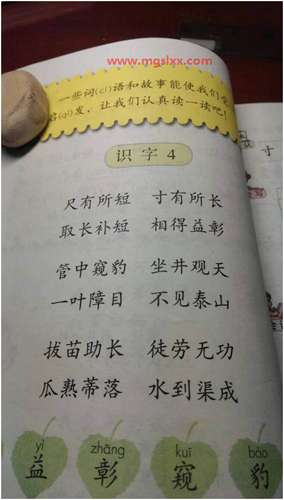 www.mgslxx.com
一些词(cí)语和故事能使我们受
启(qǐ)发，让我们认真读一读吧！
识字4
尺有所短 寸有所长
取长补短 相得益彰
管中窥豹 坐井观天
一叶障目 不见泰山
拔苗助长 徒劳无功
瓜熟蒂落 水到渠成
yì zhāng kuī bào
益 彰 窥 豹
寸